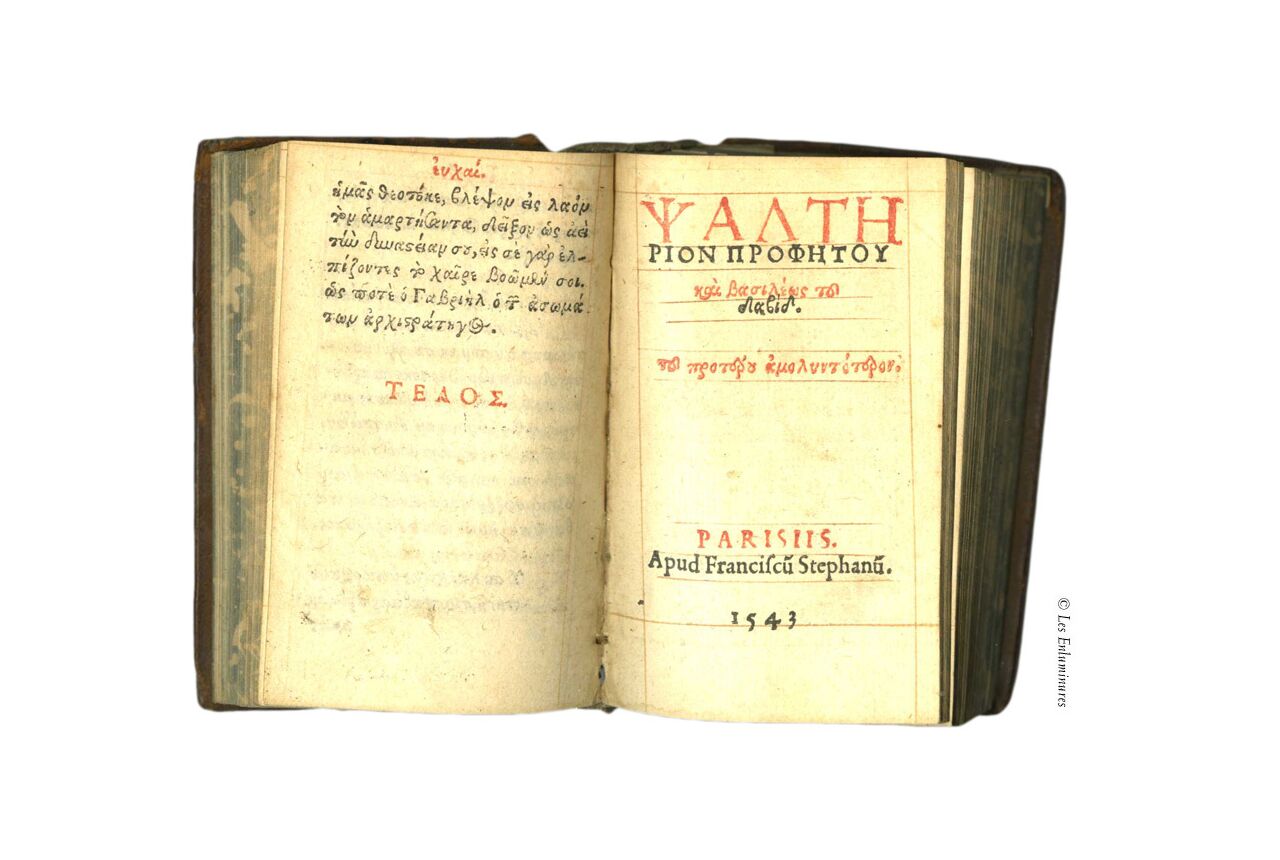 ἐυχαί.
ἡμᾶς θεοτόκε, βλέψον εἰς λαὸν
τὸν ἁμαρτήσαντα, δεῖξον ὡς ἀεὶ
τὴν δυναστείαν σου, εἰς σὲ γὰρ ἐλ-
πίζοντες τὸ χαῖρε βοῶμέν σοι.
ὡς ποτὲ ὁ Γαβριὴλ ὁ τ̃ ἀσωμά
των ἀρχιστράτηγος.
ΤΕΛΟΣ.
ΨΑΛΤΗ
ΡΙΟΝ ΠΡΟΦΗΤΟΥ
καὶ βασιλέως τοῦ
δαβίδ.
τοῦ προτέρου ἀμολυντότερον.
PARISIIS.
Apud Franciſcũ Stephanũ.
1543
© Les Enluminures